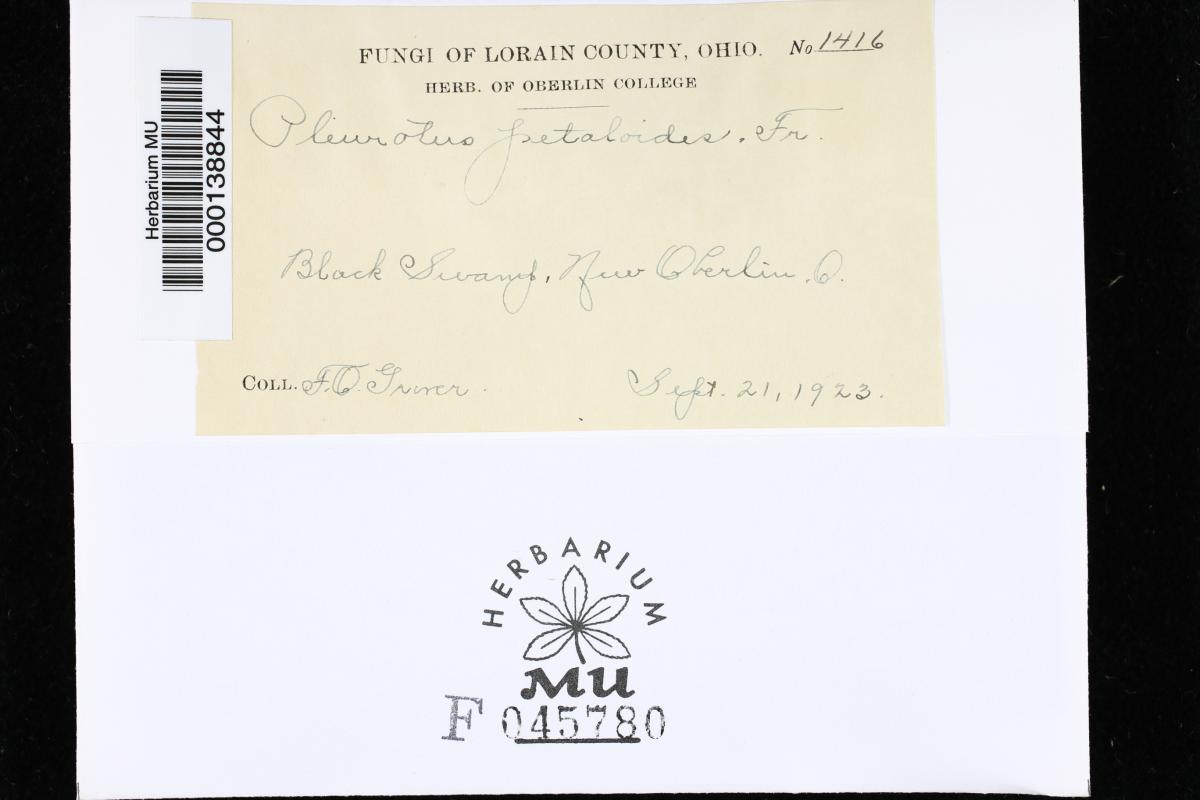 FUNGI OF LORAIN COUNTY, OHIO. No 1416
HERB. OF OBERLIN COLLEGE
Pleurotus petaloides. Fr.
Black Swamp, New Oberlin, O.
COLL. F.O. Grover. Sept. 21, 1923.
Herbarium MU
000138844
HERBARIUM
MU
F 045780